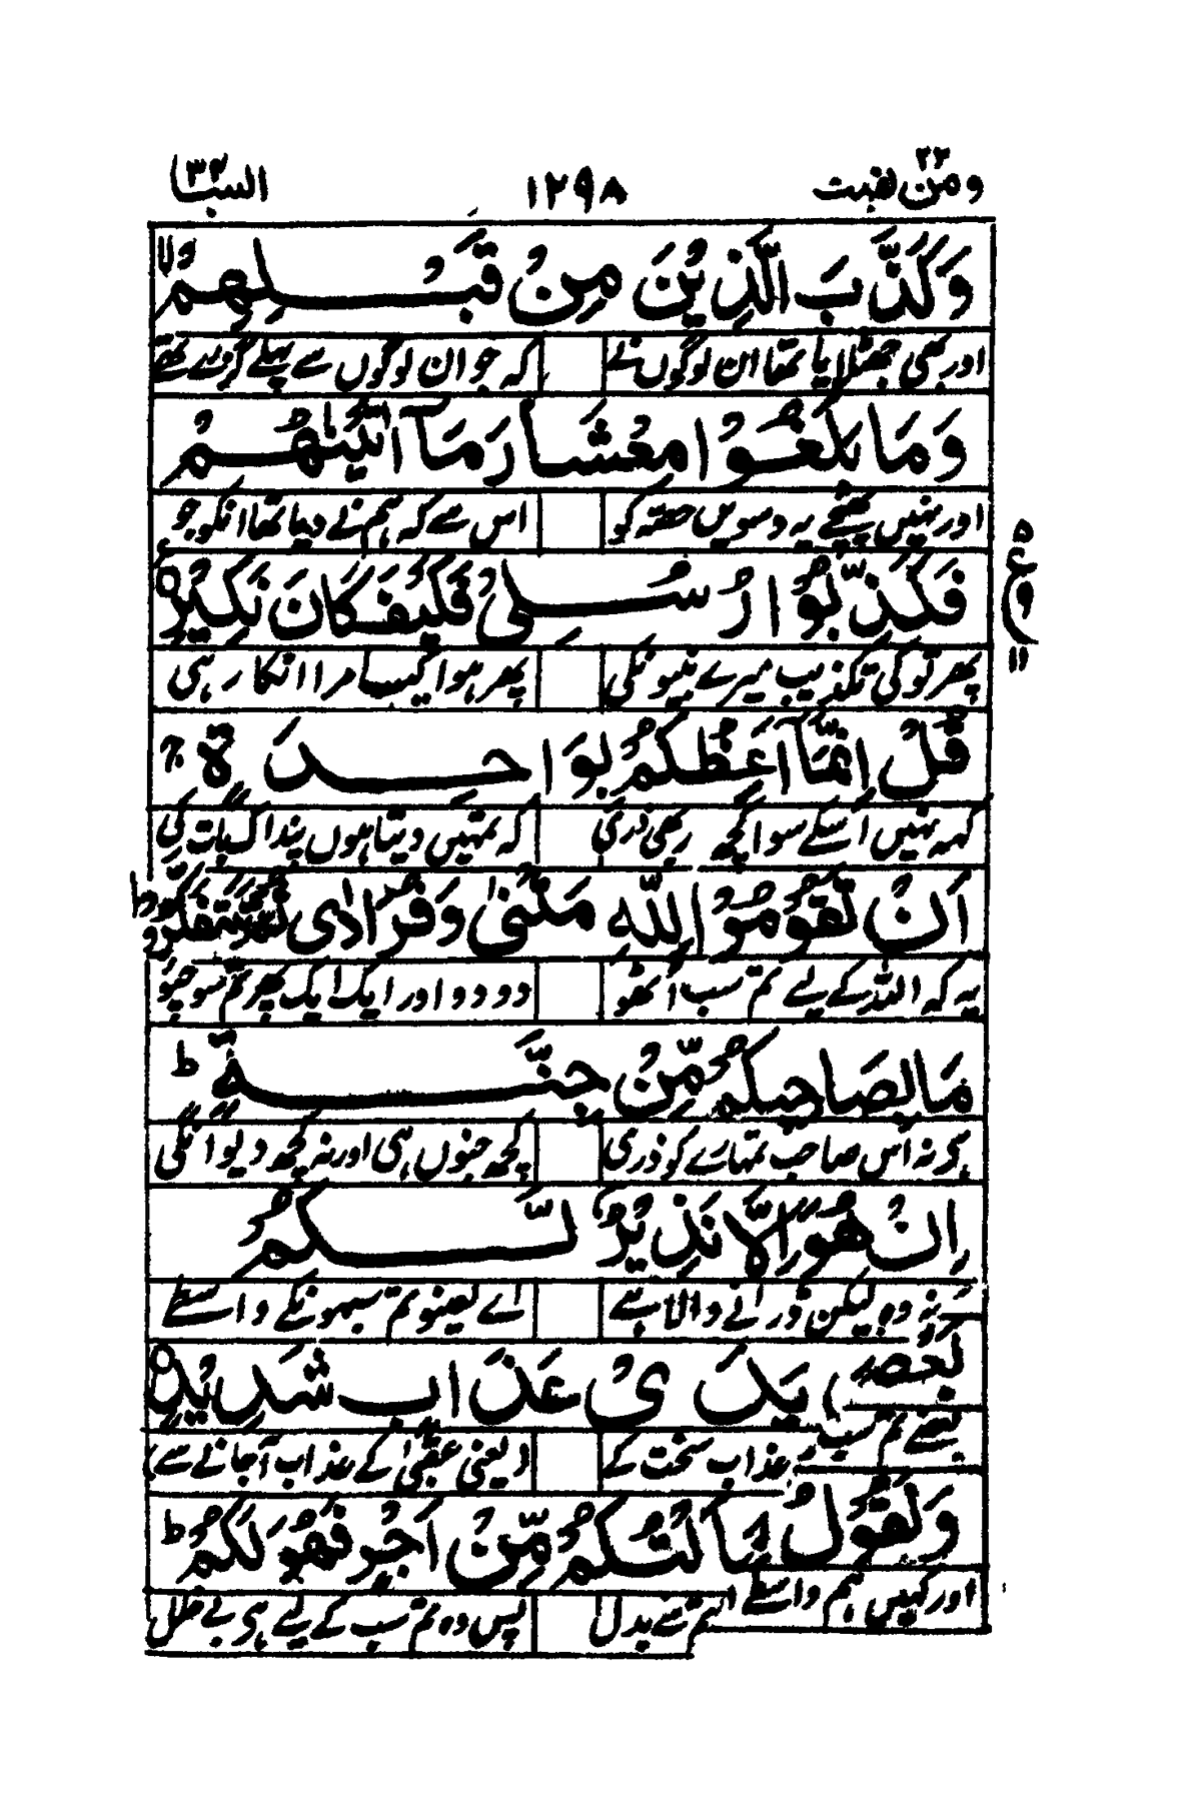 ومن يقنت ٢٢ ١٢٩٨ السبا ٣٤
وَكَذَّبَ الَّذِيْنَ مِنْ قَبْلِهِمْ ۙ
اور بھی جھٹلایا تھا ان لوگوں نے کہ جو ان لوگوں سے پہلے گزرے تھے
وَمَا بَلَغُوْا مِعْشَارَ مَآ اٰتَيْنٰهُمْ
اور نہیں پہنچے یہ دسویں حصّہ کو اس سے کہ ہم نے دیا تھا انکو جو
فَكَذَّبُوْا رُسُلِيْ فَكَيْفَ كَانَ نَكِيْرِ
پھر تو کی تکذیب میرے نبیونکی پھر ہوا کیسا مرا انکار ہی
ع ٥ ١١
قُلْ اِنَّمَآ اَعِظُكُمْ بِوَاحِدَةٍ ۚ
کہہ نہیں اسکے سوا کچھ بھی ذری کہ تمہیں دیتا ہوں پند اک بات کی
اَنْ تَقُوْمُوْا لِلّٰهِ مَثْنٰى وَفُرَادٰى ثُمَّ تَتَفَكَّرُوْا
یہ کہ اللہ کے لیے تم سب اٹھو دو دو اور ایک ایک پھر تم سوچو
مَا بِصَاحِبِكُمْ مِّنْ جِنَّةٍ ۭ
ہی نہ اس صاحب تمہارے کو ذری کچھ جنوں ہی اور نہ کچھ دیوانگی
اِنْ هُوَ اِلَّا نَذِيْرٌ لَّكُمْ
نہ وہ لیکن ڈرانے والا ہے اے لعینو تم سبھونکے واسطے
بَيْنَ يَدَيْ عَذَابٍ شَدِيْدٍ
پہلے عذاب سخت کے یعنی عقبیٰ کے عذاب آجانے سے
قُلْ مَا سَاَلْتُكُمْ مِّنْ اَجْرٍ فَهُوَ لَكُمْ ۭ
تم سے بدل پس وہ تم سب کے لیے ہی بے خلل